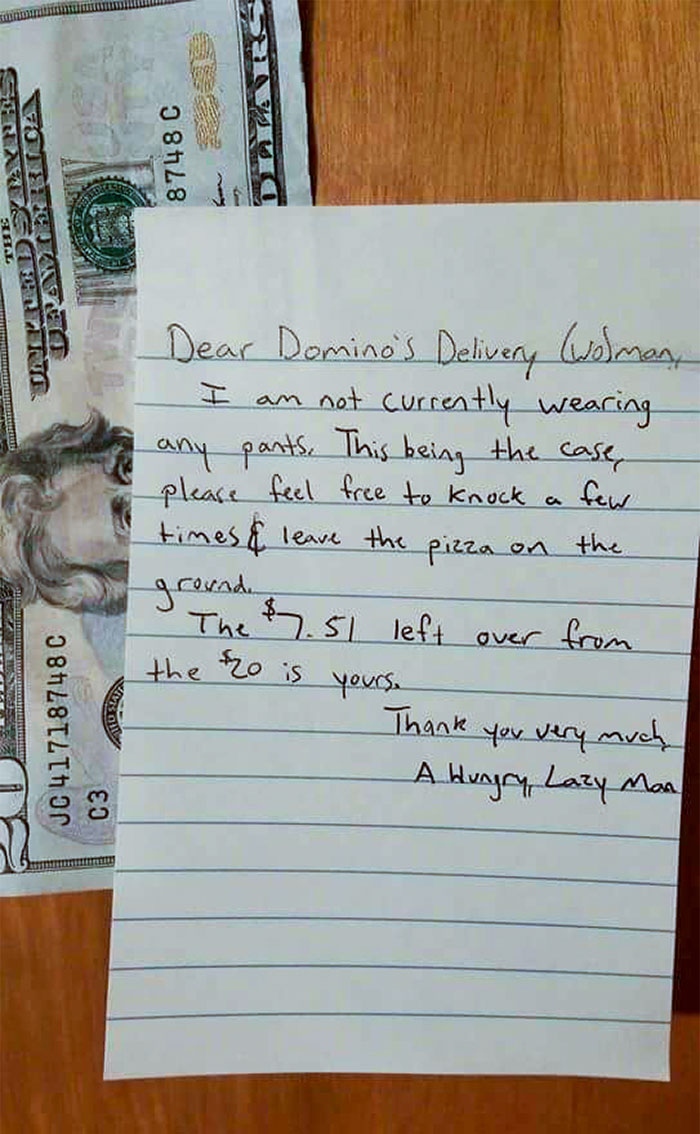 THE
UNITED STATES
OF AMERICA
8748 C
JC 41718748 C
C3
20
Dear Domino's Delivery (Wo)man,
I am not currently wearing
any pants. This being the case,
please feel free to knock a few
times & leave the pizza on the
ground.
The $7.51 left over from
the $20 is yours.
Thank you very much,
A Hungry, Lazy Man